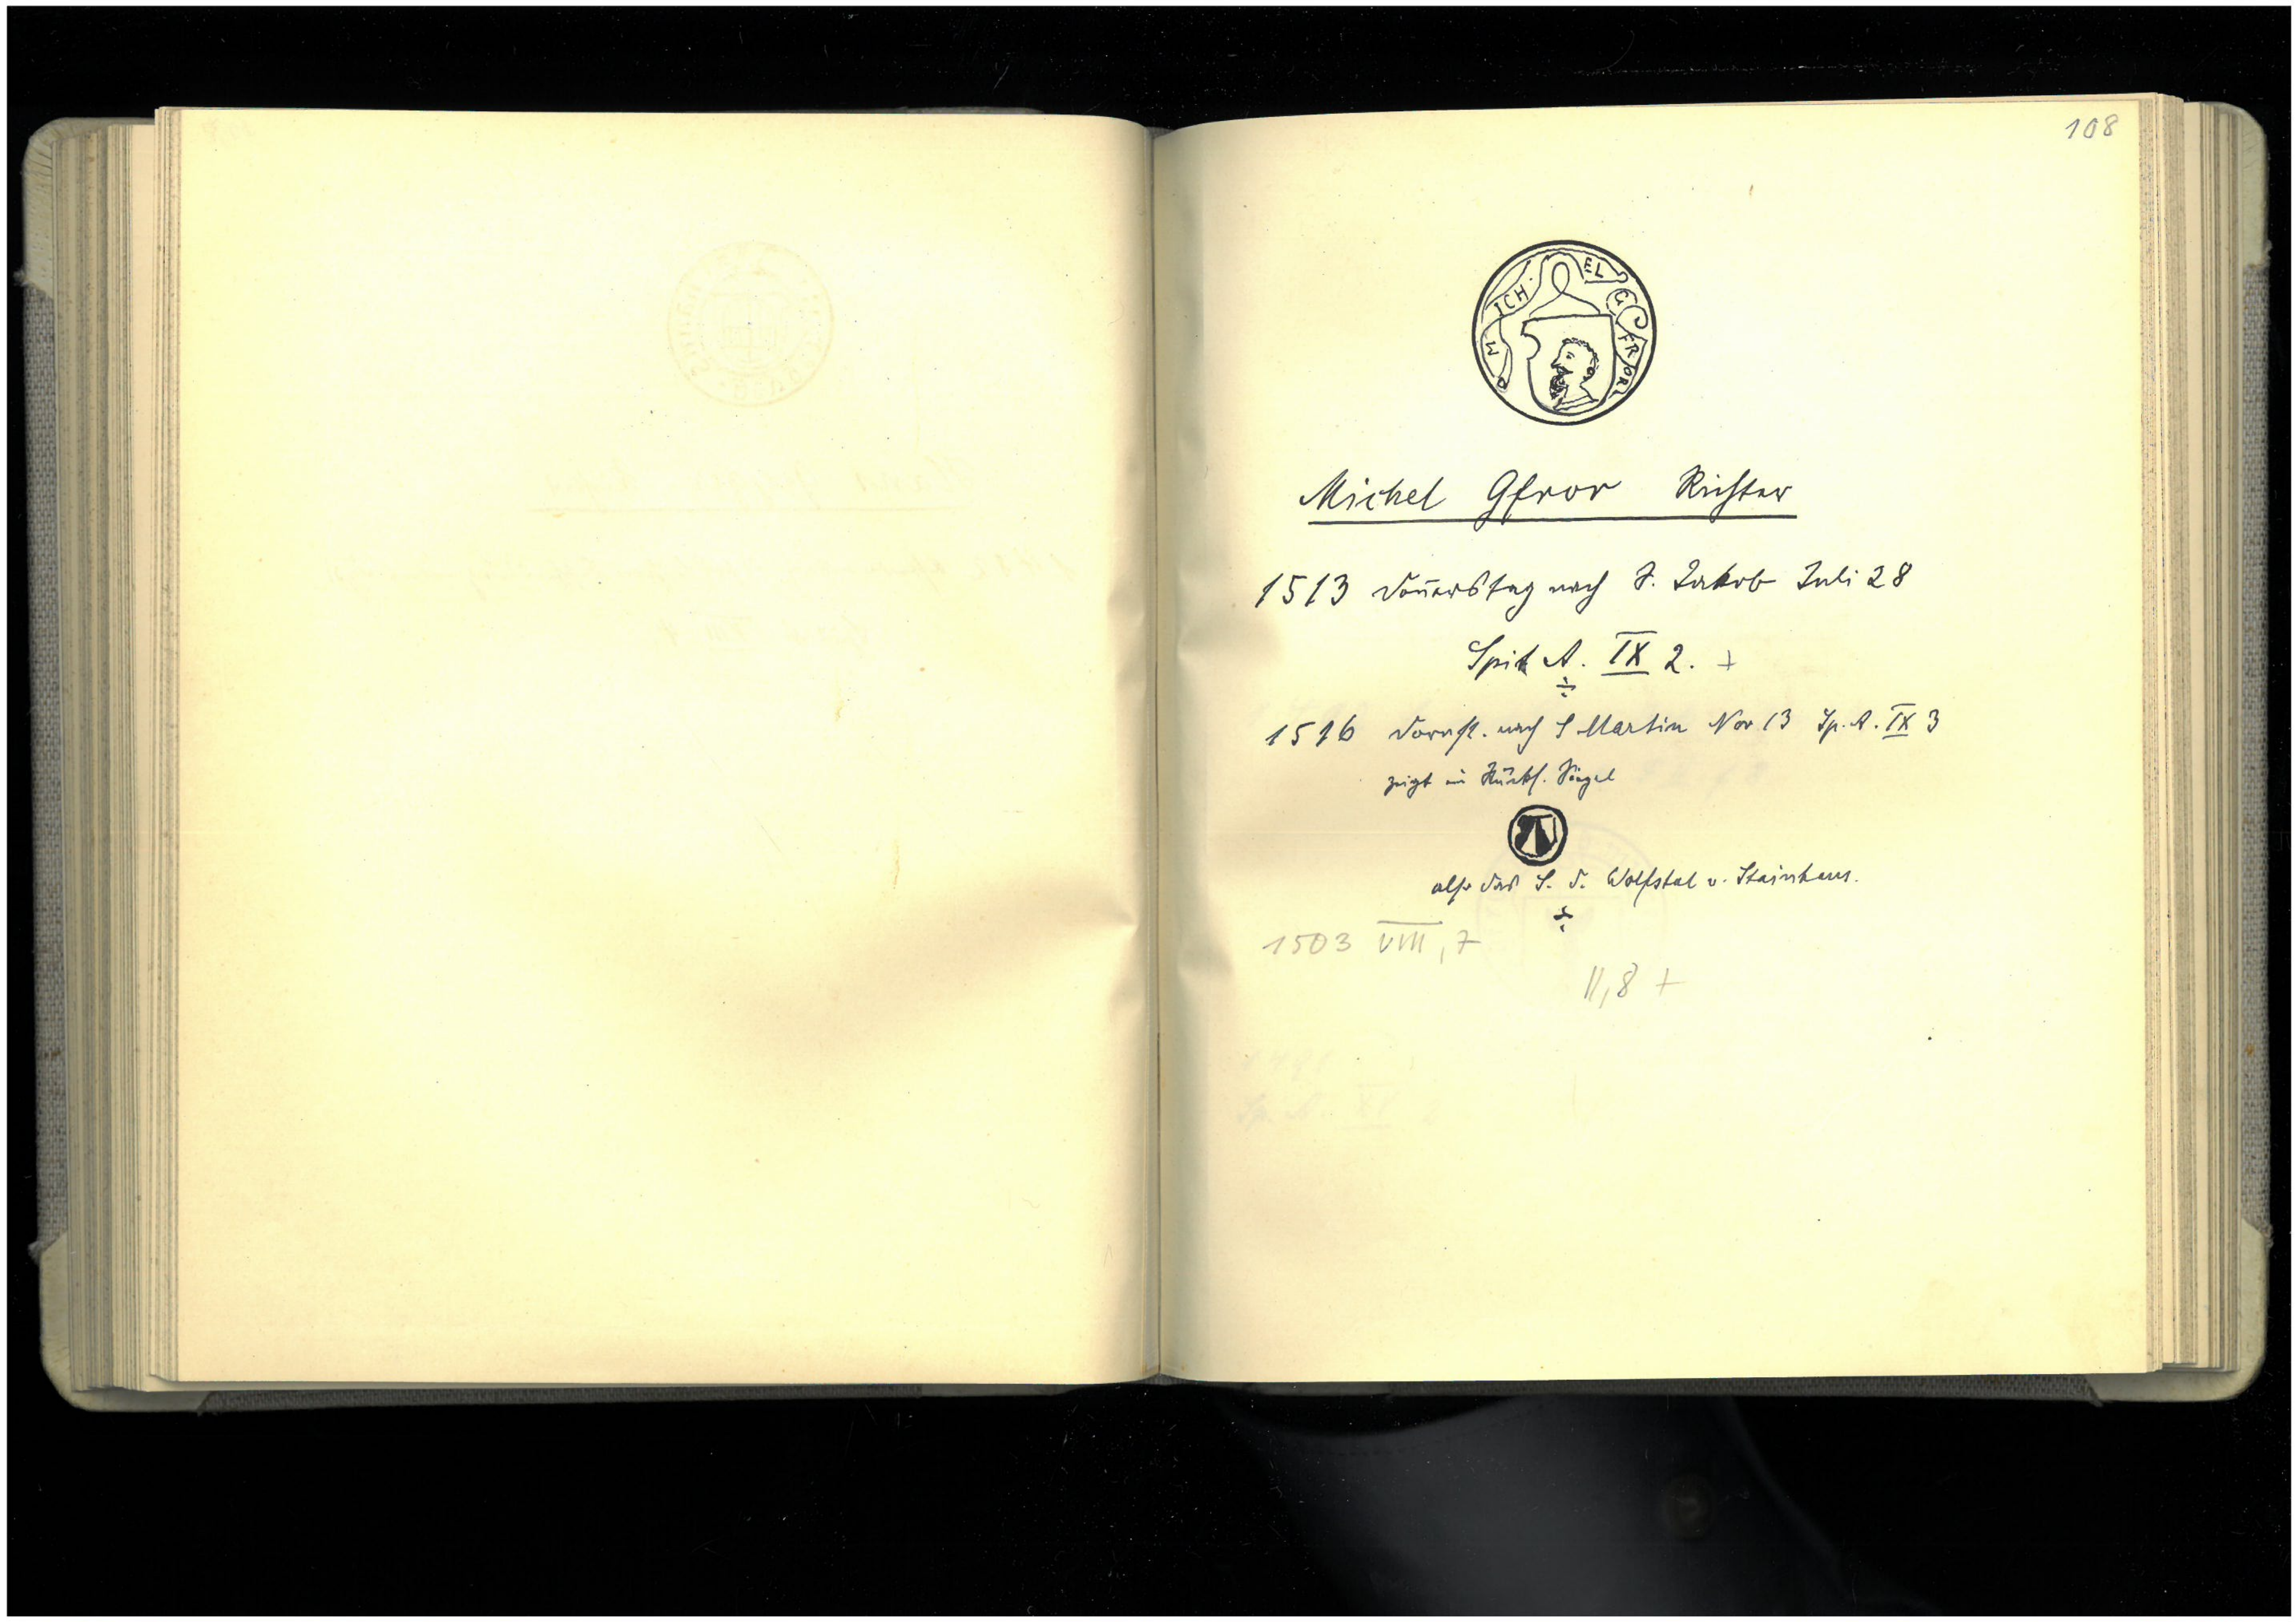 108
MICHEL GFROR
Michel Gfror Richter
1513 Donnerstag nach S. Jakob Juli 28
Spit A. IX 2. +
1516 Donnst. nach S Martin Nov 13 Sp. A. IX 3
zeigt im Rücks. Siegel
also das S. d. Wolfstal v. Stainhaus.
1503 VIII, 7
II, 8 +